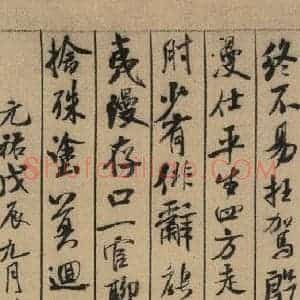 終不易抂駕殷
漫仕平生四方走
肘少有俳辭能
夷漫存口一官聊
捨殊塗莫迴
元祐戊辰九月